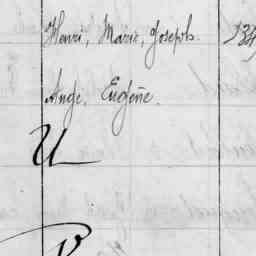 Henri, Marie, Joseph.
Ange, Eugène.
U